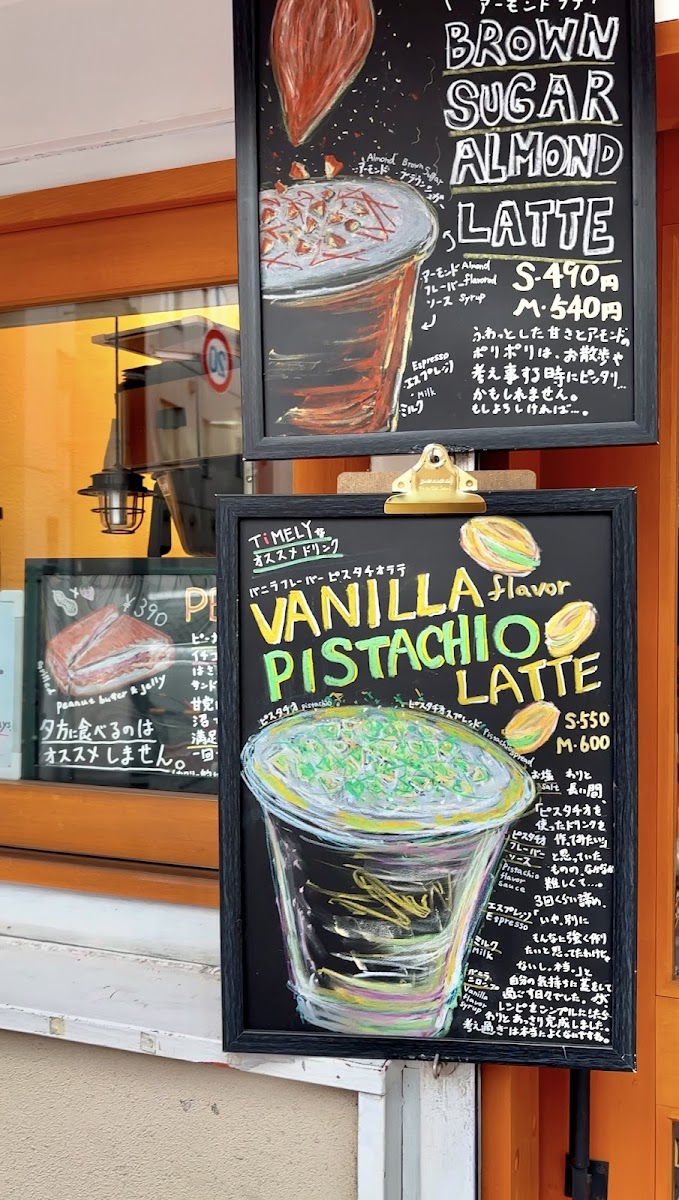 アーモンドラテ
BROWN
SUGAR
ALMOND
LATTE
Almond Brown Sugar
アーモンド・ブラウンシュガー
アーモンド Almond
フレーバー flavored
ソース syrup
Espresso
エスプレッソ
・Milk
ミルク
S・490円
M・540円
ふわっとした甘さとアーモンドの
ポリポリは、お散歩や
考え事する時にピッタリ…
かもしれません。
もしよろしければ…。
20
TiMELYな
オススメドリンク
バニラフレーバーピスタチオラテ
VANILLA flavor
PISTACHIO
LATTE
S・550
M・600
ピスタチオ pistachio
ピスタチオスプレッド Pistachio spread
お塩
salt
ピスタチオ
フレーバー
ソース
Pistachio
flavor
sauce
エスプレッソ
Espresso
ミルク
Milk
バニラ
シロップ
Vanilla
flavor
syrup
わりと
長い間、
「ピスタチオを
使ったドリンクを
作ってみたい」
と思っていた
ものの、なかなか
難しくて…。
3日くらい諦め、
「いや、別に
そんなに強く作り
たいと思ってたわけじゃ
ないし。本当。」と
自分の気持ちに蓋をして
過ごす日々でした。が
レシピをシンプルにしたら
わりとあっさり完成しました。
考え過ぎは本当によくないですね。
¥390
grilled
peanut butter & jelly
夕方に食べるのは
オススメしません。
PE
ピー
イチ
はさ
サンド
甘党
沼
満足
一回